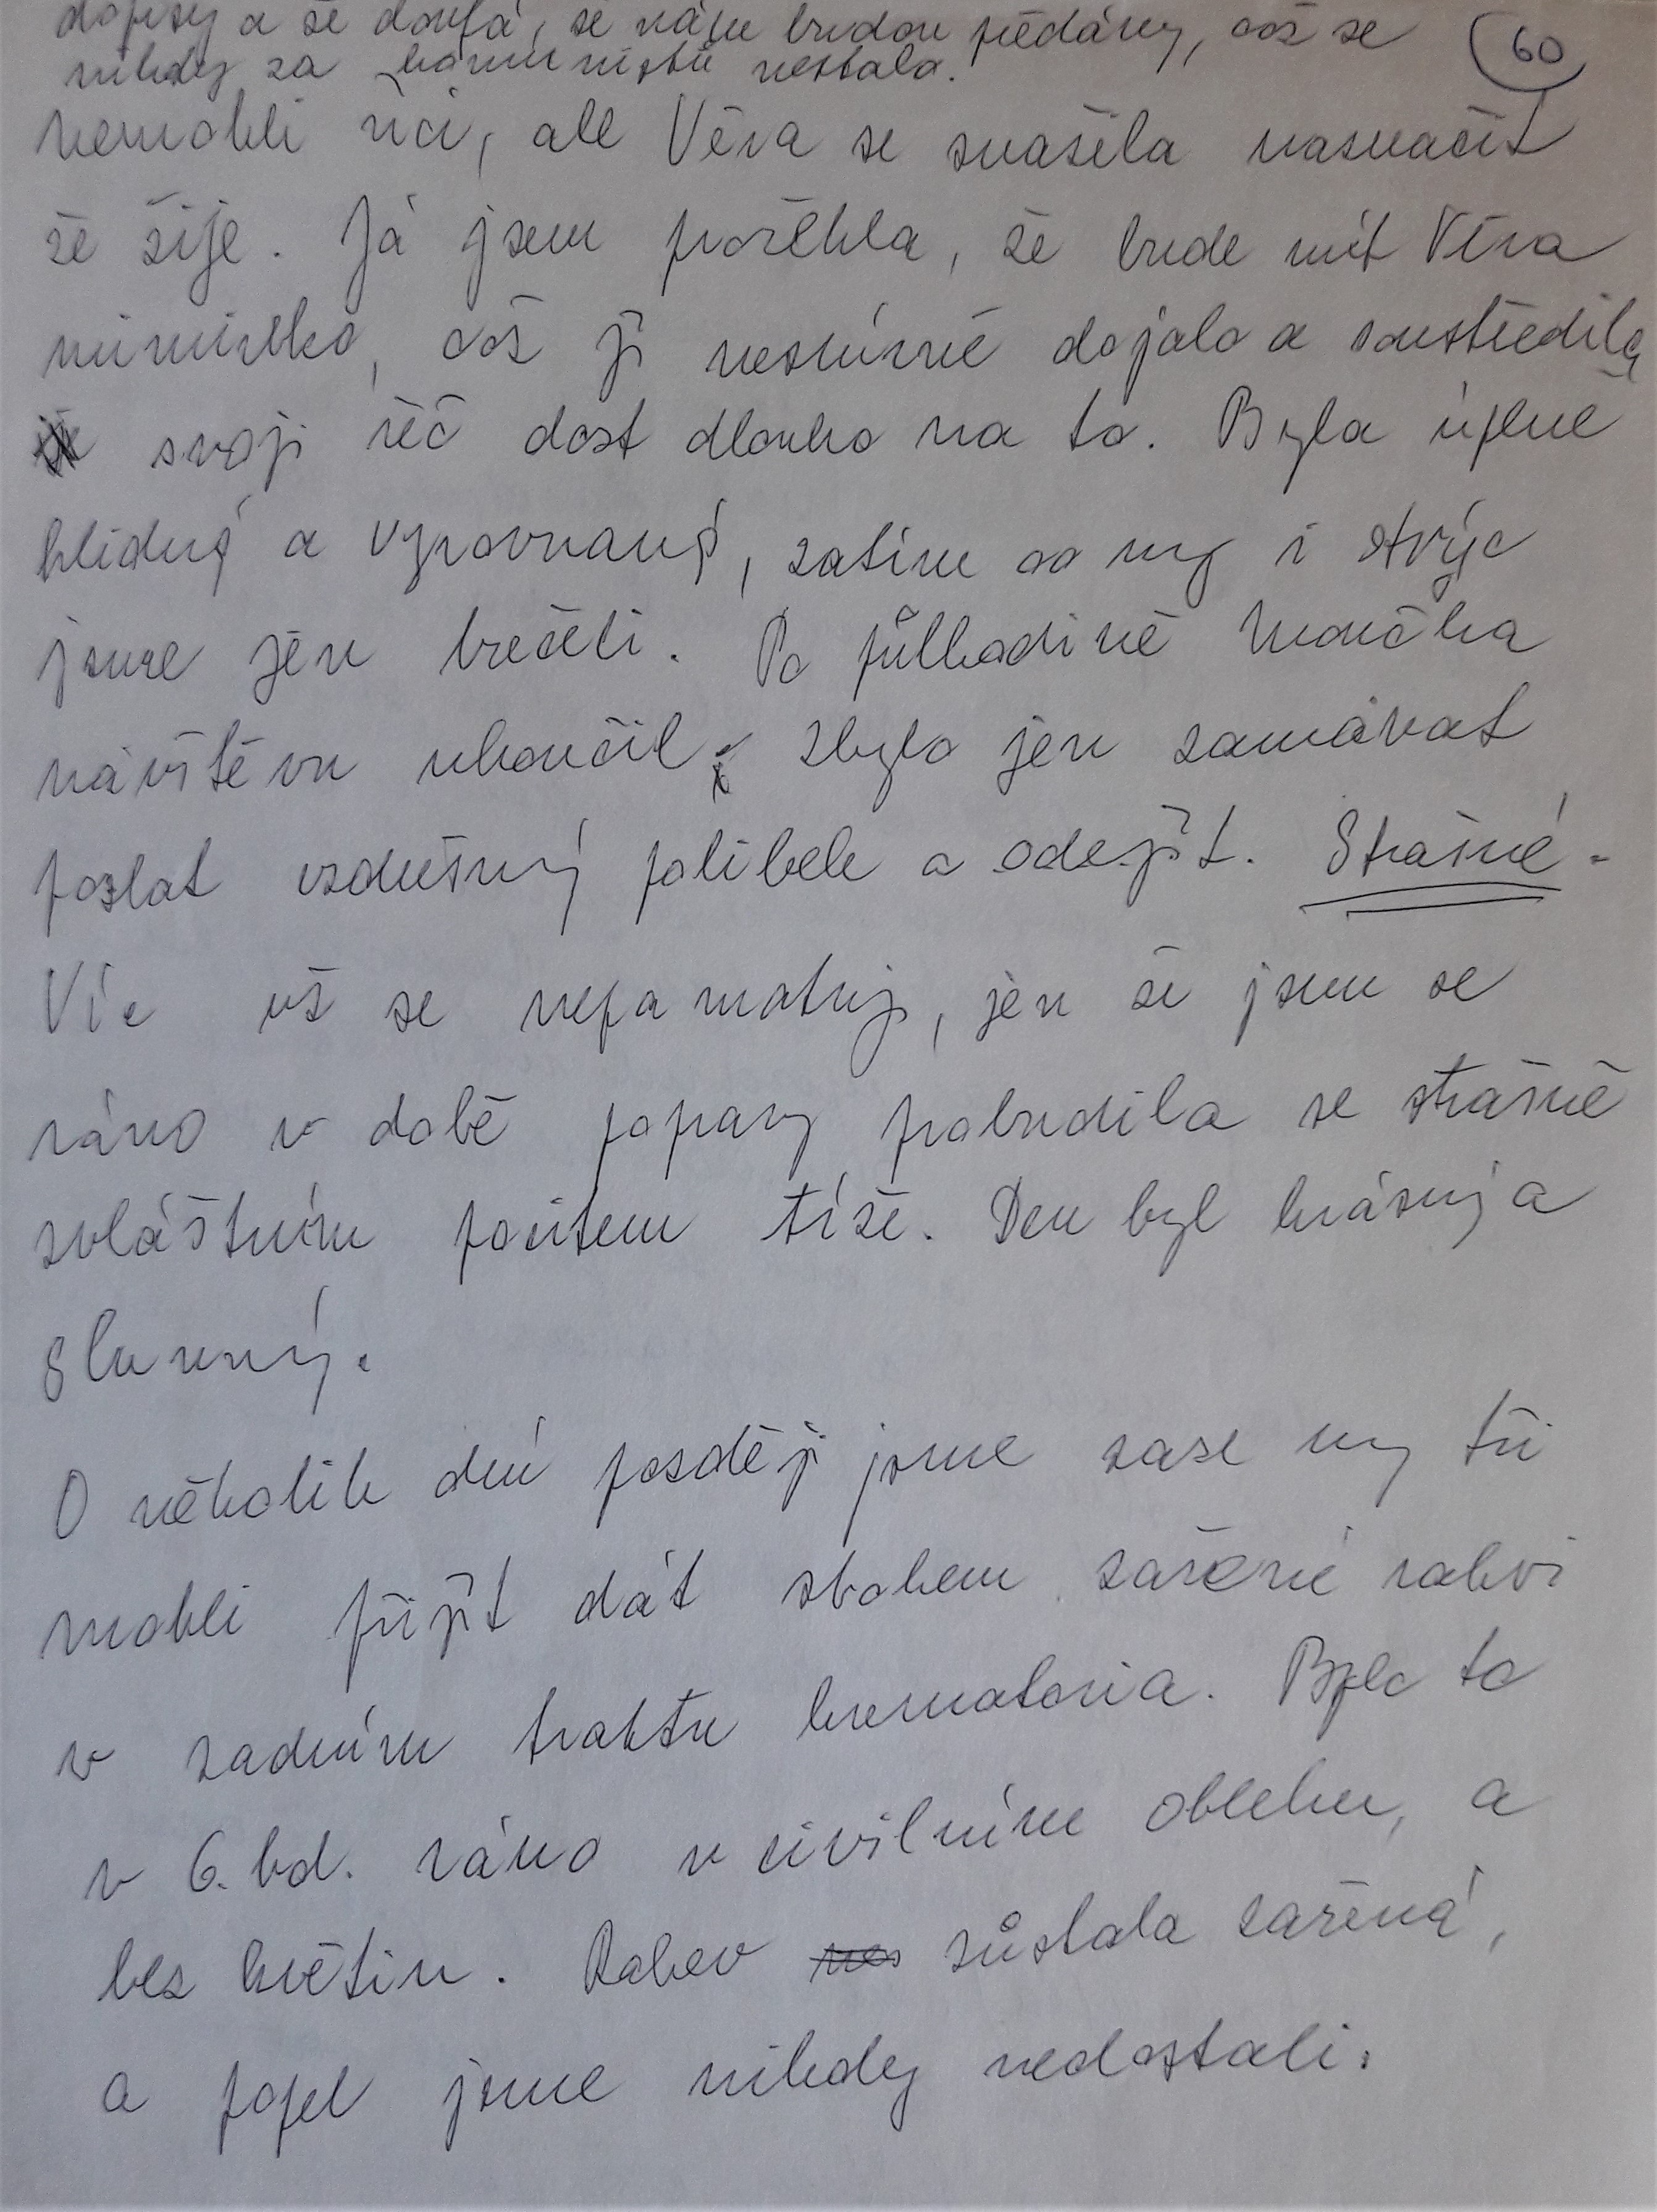 dopisy a že doufá, že nám budou předány, což se
nikdy za komunistů nestalo.
60
nemohli říci, ale Věra se snažila naznačit
že žije. Já jsem prořekla, že bude mít Věra
miminko, což ji nesmírně dojalo a soustředila
svoji řeč dost dlouho na to. Byla úplně
klidný a vyrovnaný, zatím co my i strýc
jsme jen brečeli. Po půlhodině Koučka
návštěvu ukončil. Zbylo jen zamávat
poslat vzdušný polibek a odejít. Strašné.
Víc už se nepamatuji, jen že jsem se
ráno v době popravy probudila se strašně
zvláštním pocitem tíže. Den byl krásný a
slunný.
O několik dní později jsme zase my tři
mohli přijít dát sbohem zavřené rakvi
v zadním traktu krematoria. Bylo to
v 6. hod. ráno v civilním obleku, a
bez květin. Rakev nes zůstala zavřená,
a popel jsme nikdy nedostali.